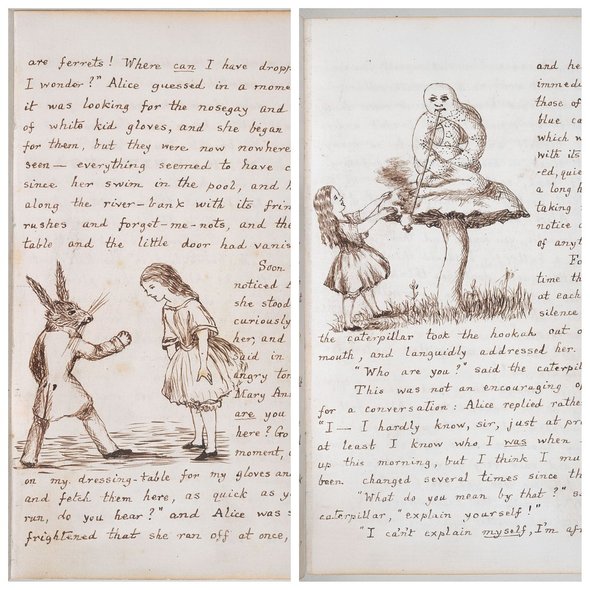 are ferrets! Where can I have dropp
I wonder?" Alice guessed in a mome
it was looking for the nosegay and
of white kid gloves, and she began
for them, but they were now nowhere
seen — everything seemed to have c
since her swim in the pool, and h
along the river-bank with its frin
rushes and forget-me-nots, and the
table and the little door had vanis
Soon
noticed A
she stood
curiously
her, and
said in
angry ton
Mary Ann
are you
here? Go
moment, a
on my dressing-table for my gloves and
and fetch them here, as quick as y
run, do you hear?" and Alice was s
frightened that she ran off at once,
and he
immedi
those of
blue ca
which w
with its
-ed, quie
a long h
taking
notice o
of anyt
Fo
time th
at each
silence
the caterpillar took the hookah out o
mouth, and languidly addressed her.
"Who are you?" said the caterpil
This was not an encouraging o
for a conversation: Alice replied rathe
"I — I hardly know, sir, just at pre
at least I know who I was when
up this morning, but I think I mu
been changed several times since th
"What do you mean by that?" sa
caterpillar, "explain yourself!"
"I can't explain myself, I'm afr